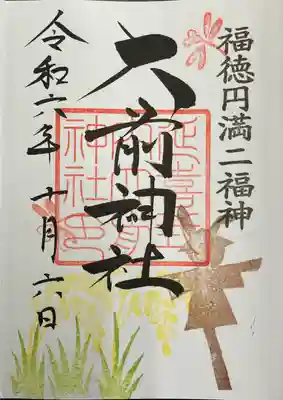 福徳円満二福神
大前神社
延喜式内
神社
令和六年十月六日